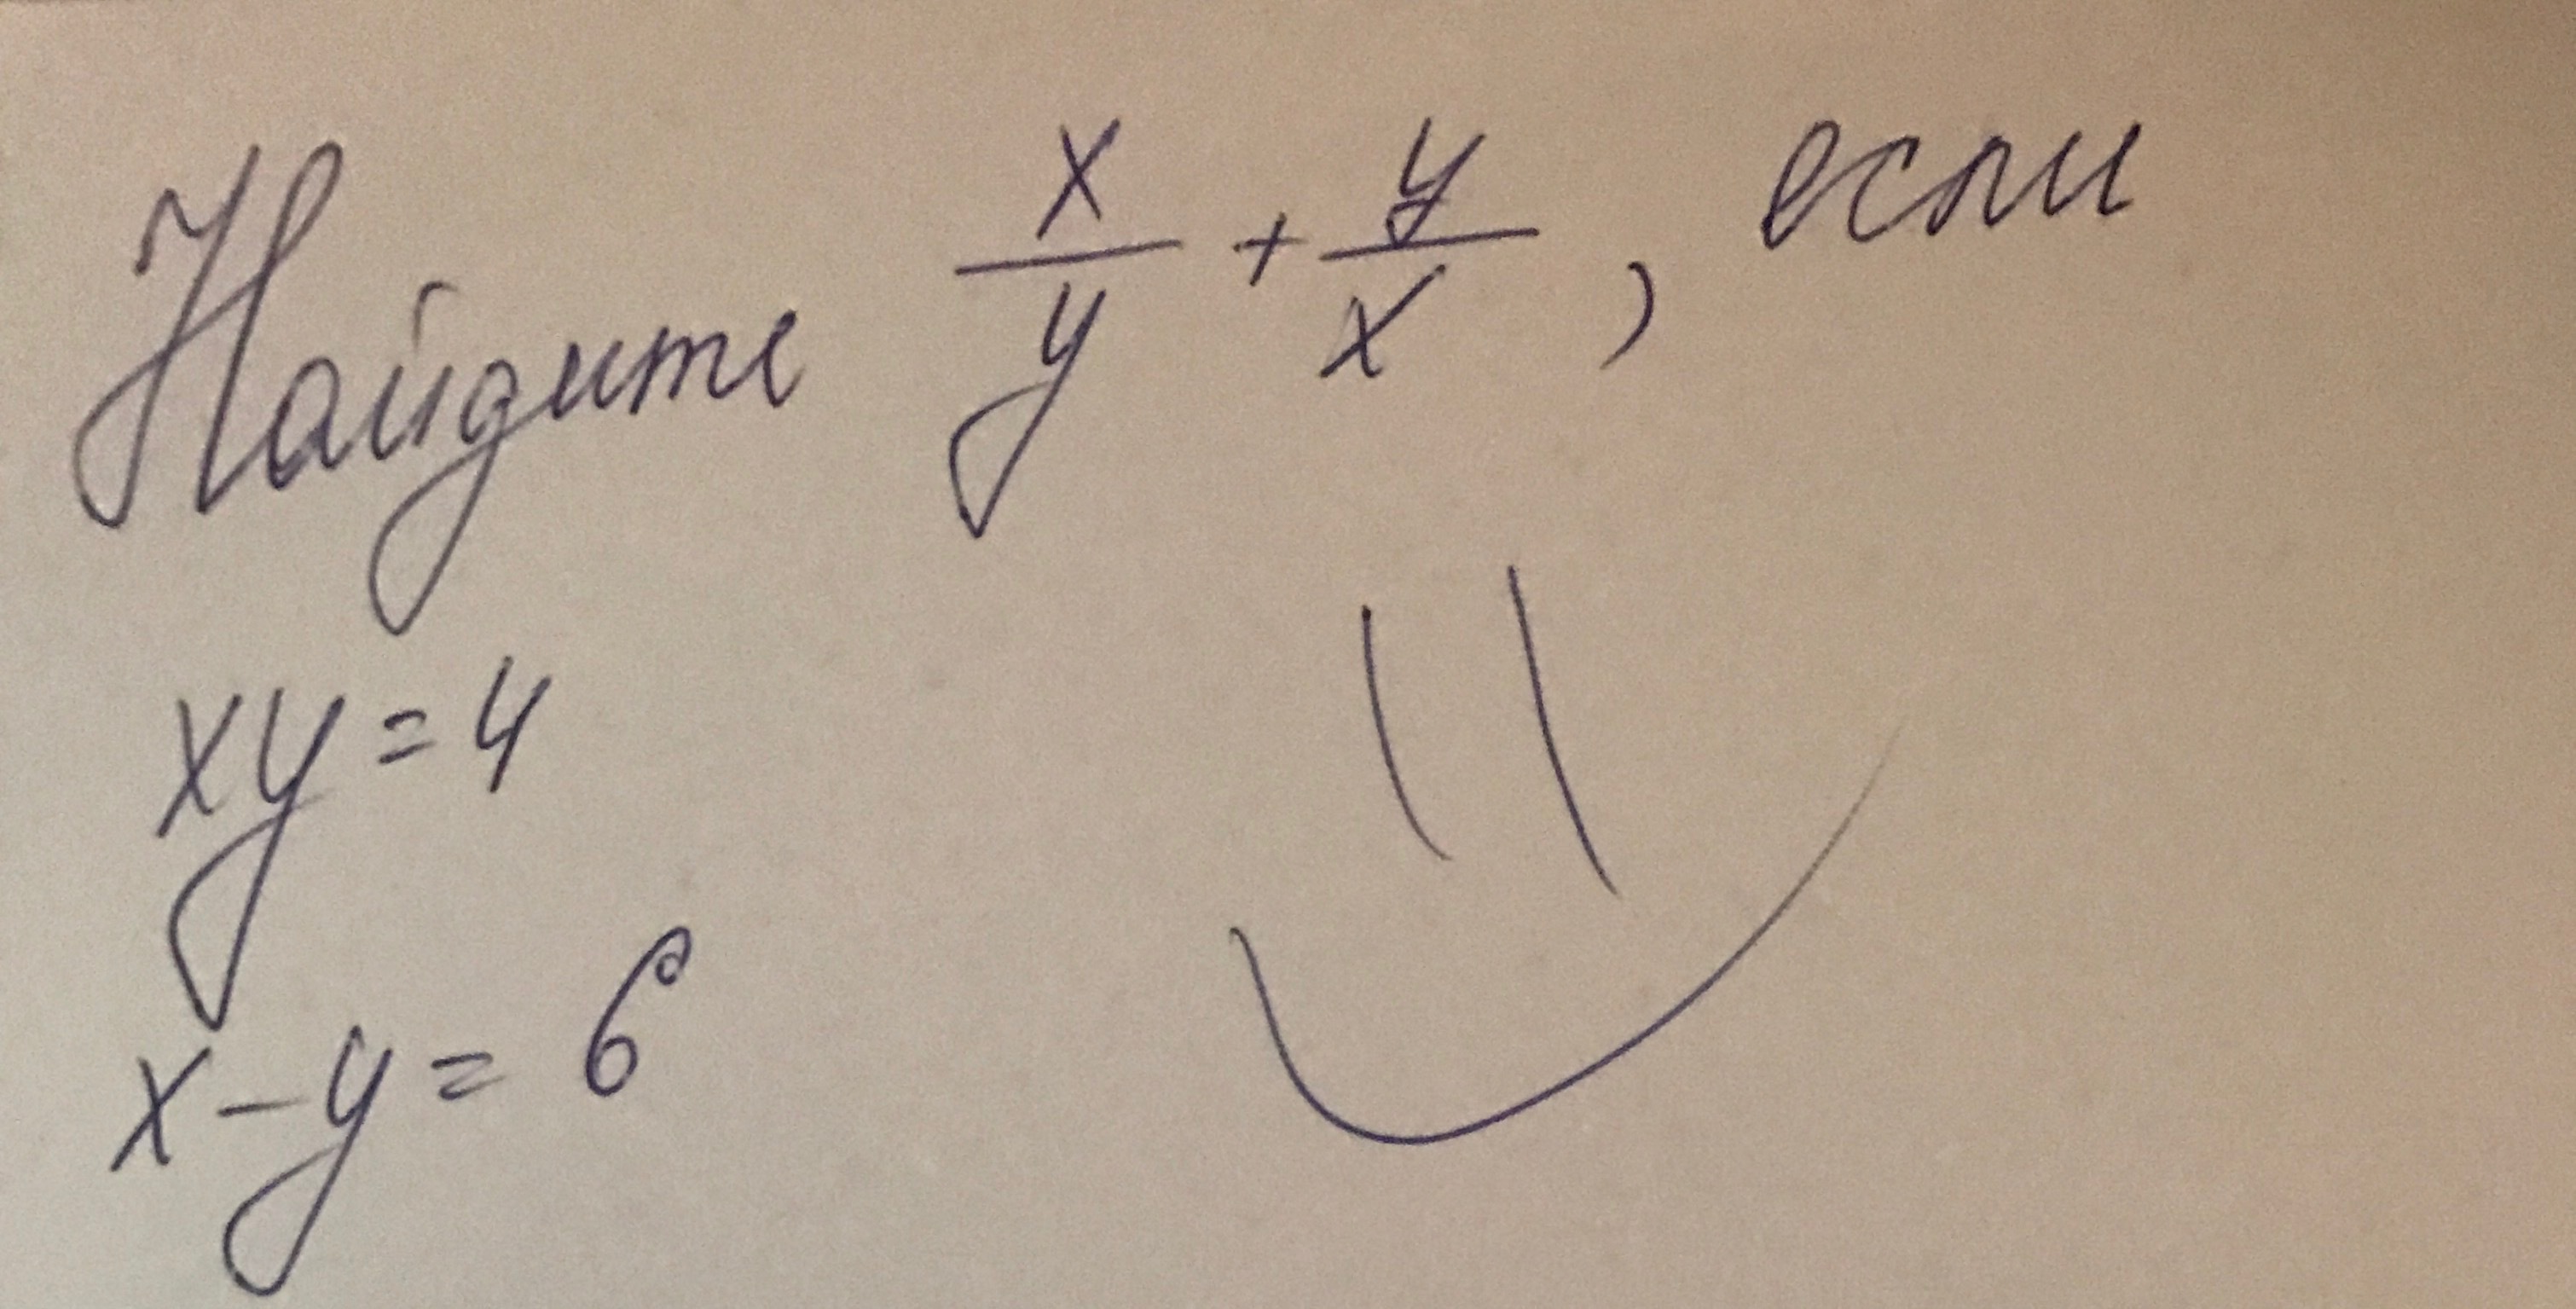 Найдите x/y + y/x, если
xy = 4
x - y = 6